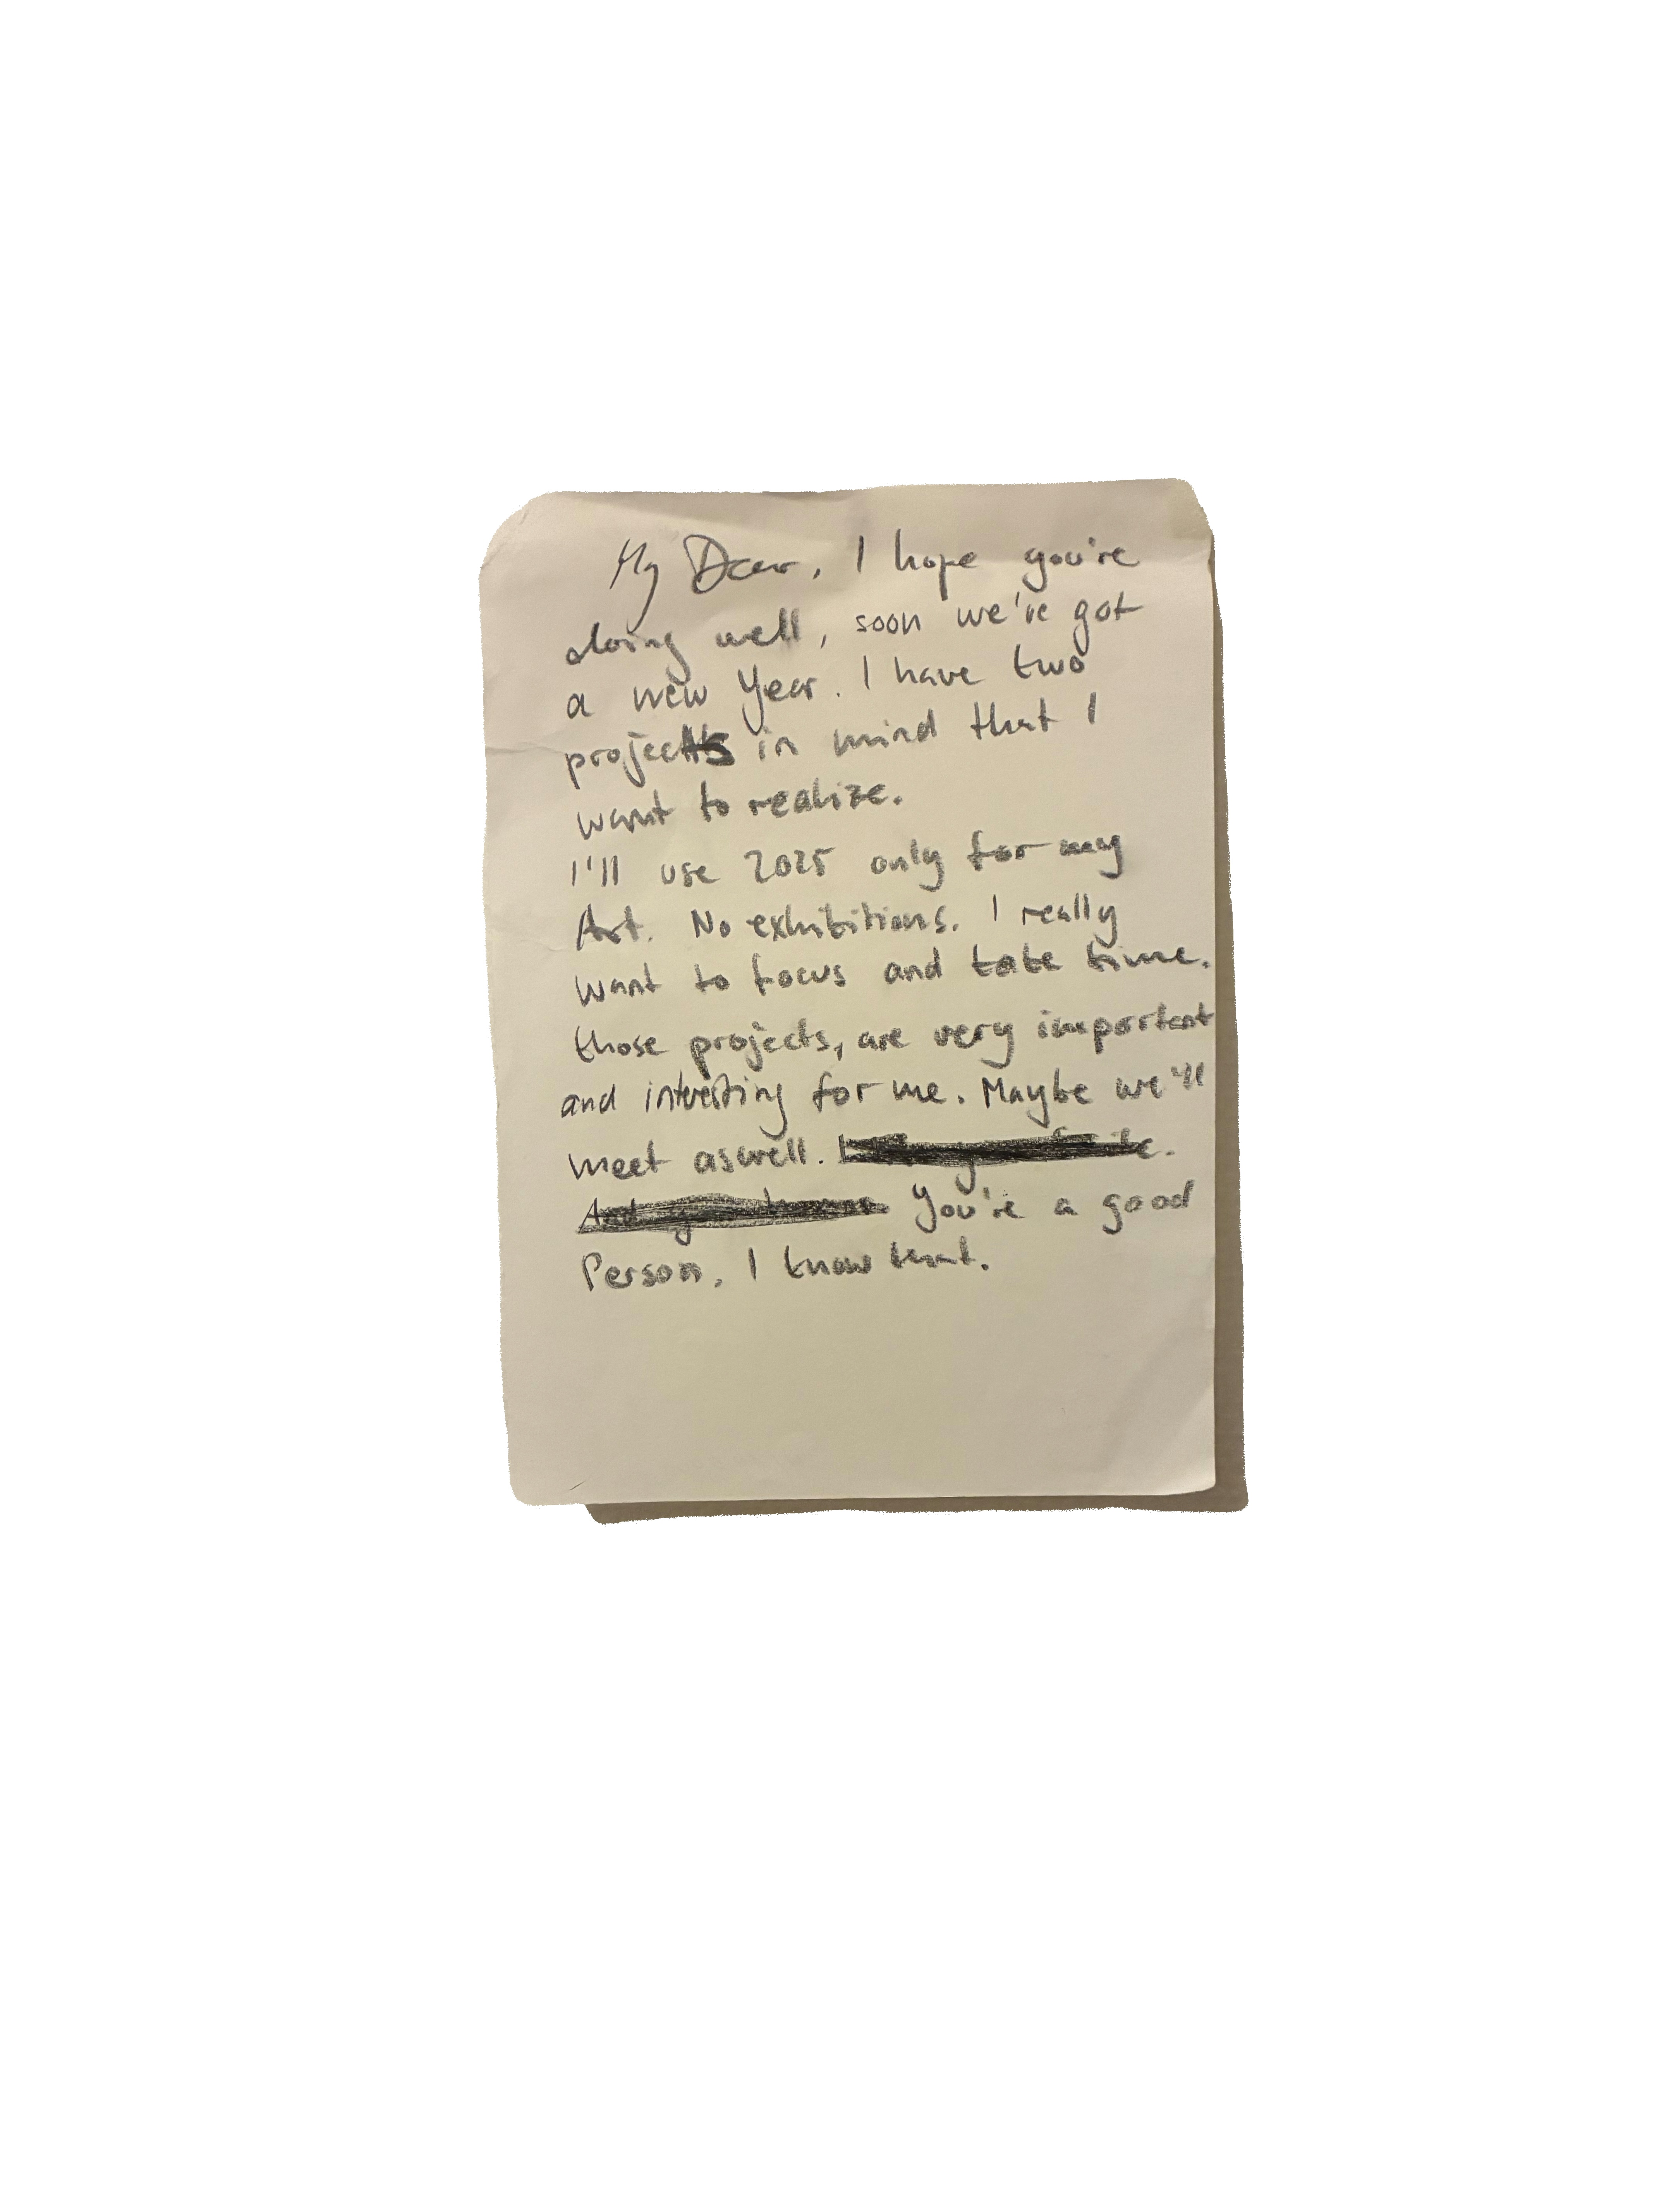 My Dear, I hope you're
doing well, soon we've got
a new Year. I have two
projects in mind that I
want to realize.
I'll use 2025 only for my
Art. No exhibitions. I really
want to focus and take time.
those projects, are very important
and interesting for me. Maybe we'll
meet aswell.
You're a good
Person, I know that.